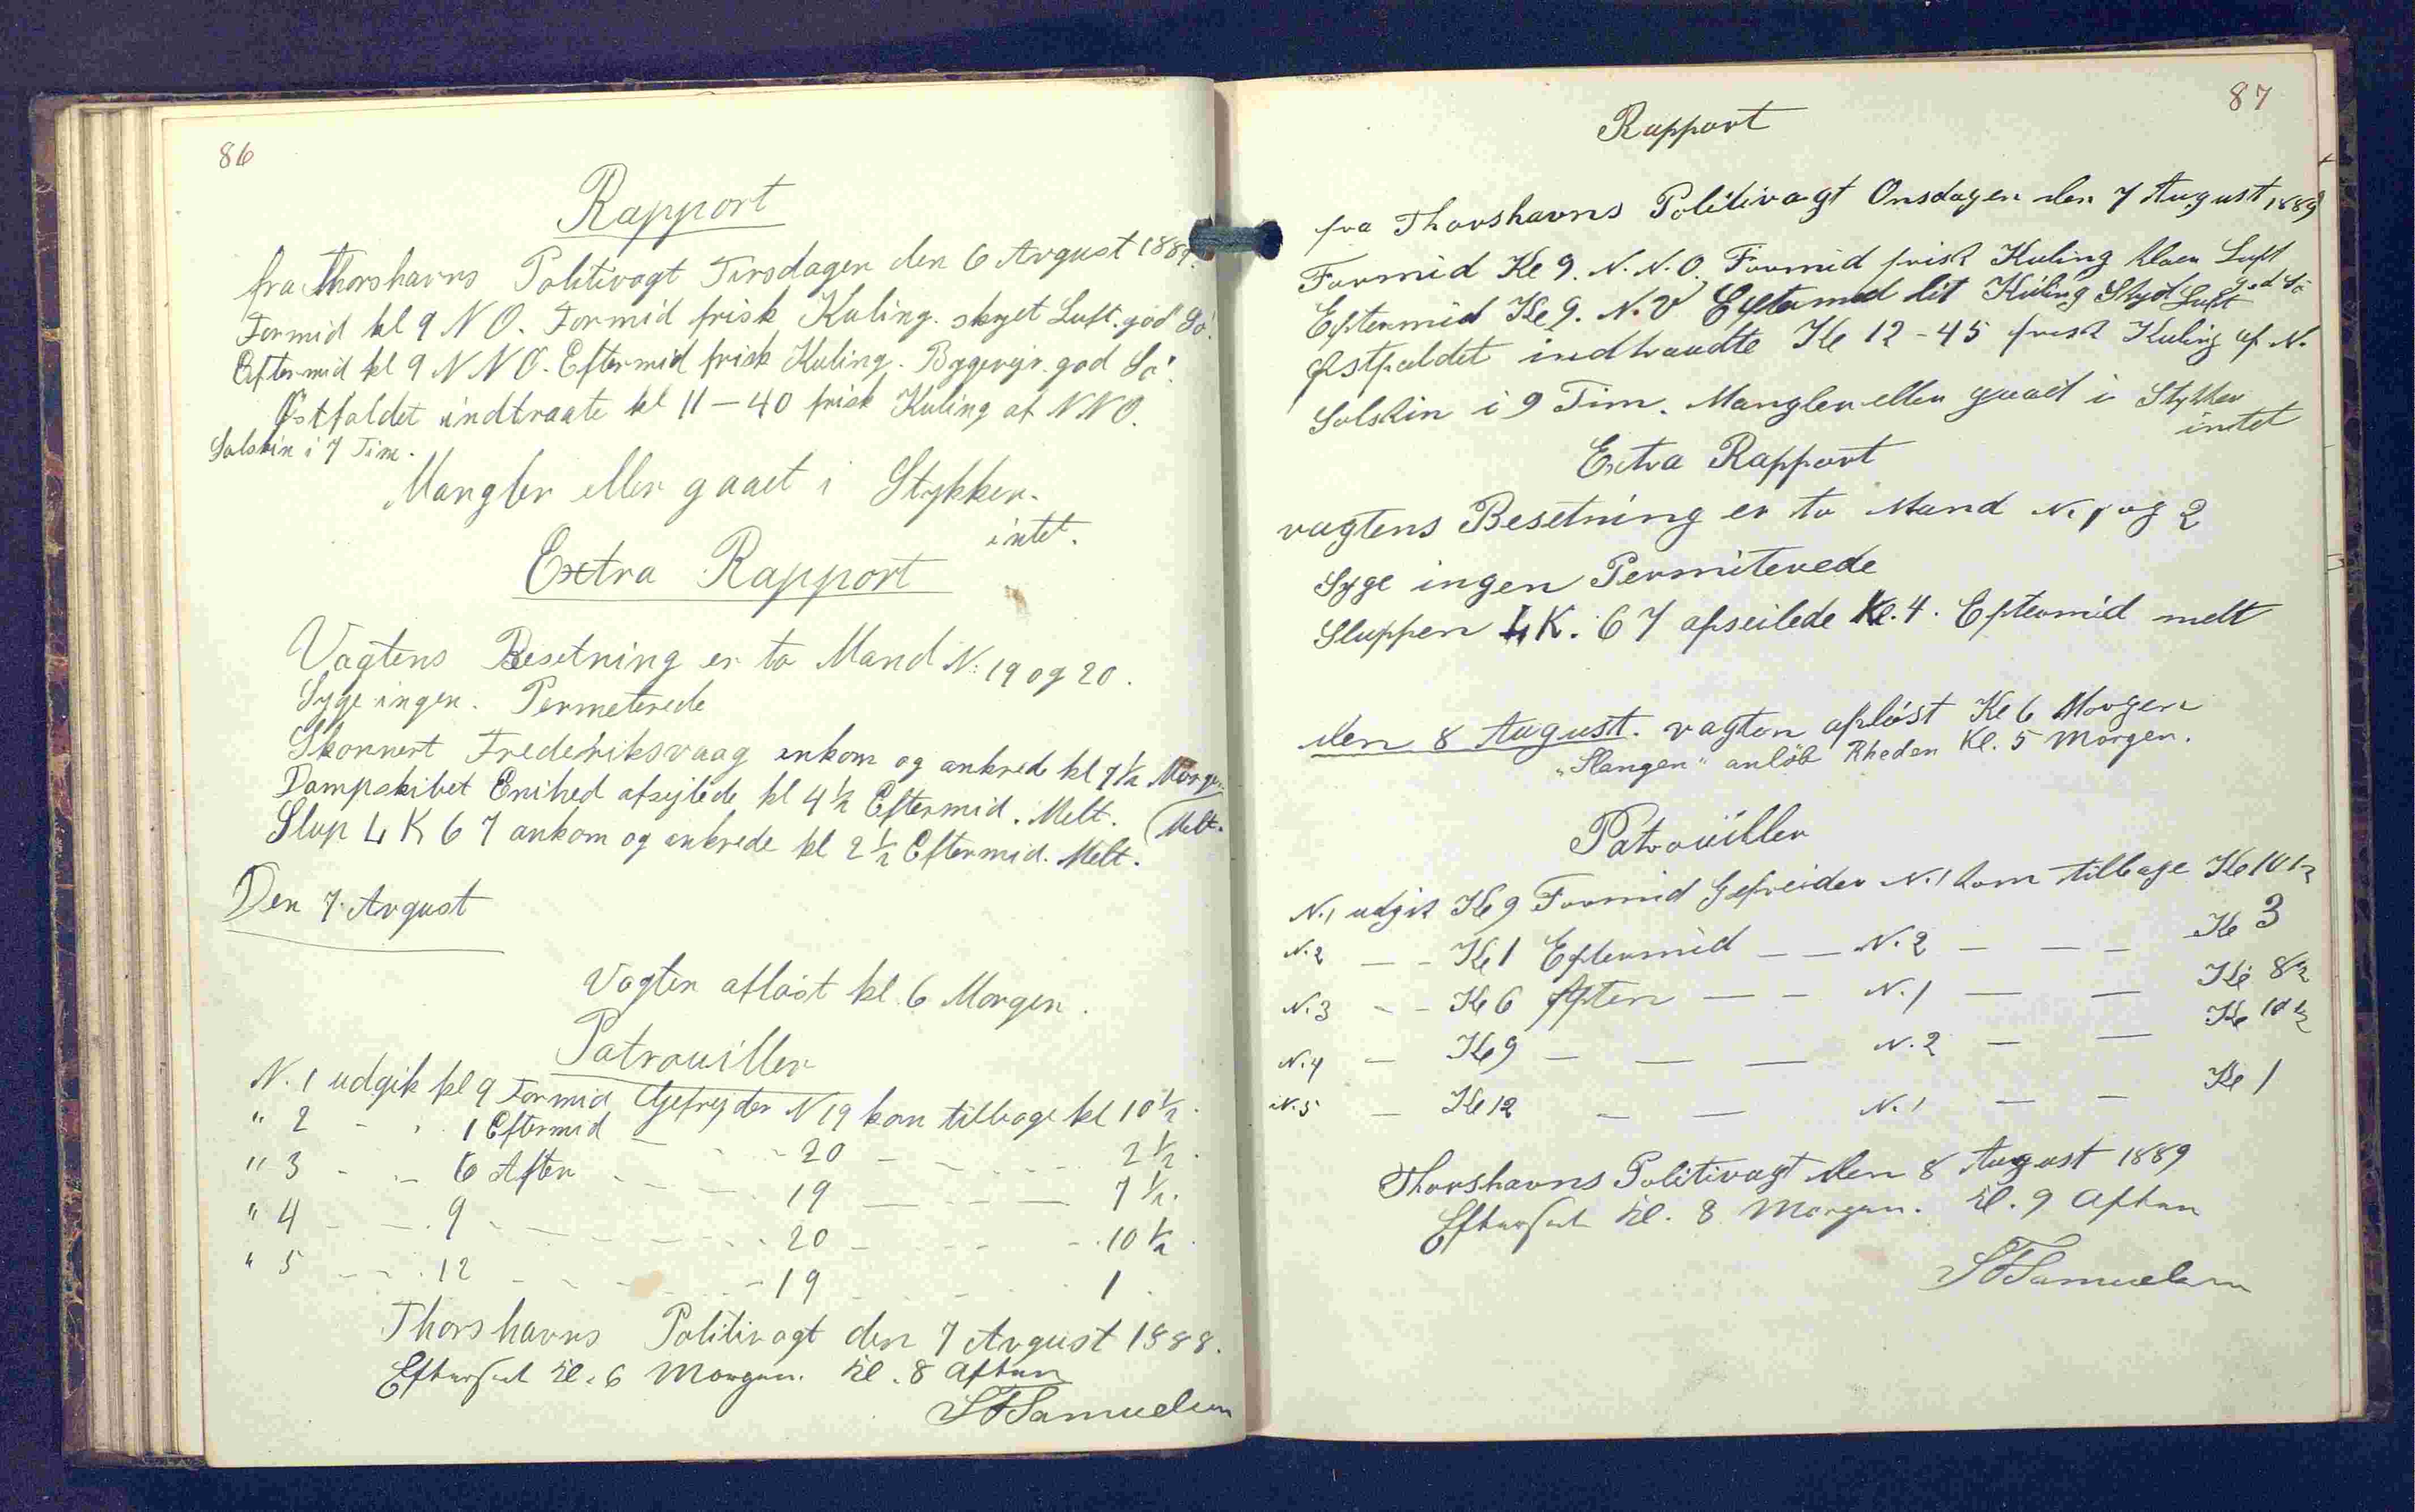 86
Rapport
fra Thorshavns Politivagt Tirsdagen den 6 Avgust 1889.
Formid kl 9 N O. Formid frisk Kuling. skyet Luft. god Sö.
Eftermid kl 9 N N O. Eftermid frisk Kuling. Bygevejr. god Sö.
Østfaldet indtraate kl 11 – 40 frisk Kuling af N N O.
Solskin i 7 Tim.
Mangler eller gaaet i Stykker.
intet.
Extra Rapport
Vagtens Besetning er to Mand N: 19 og 20.
Syge ingen. Permeterede
Skonnert Frederiksvaag ankom og ankrede kl 7½ Morgen
Dampskibet Enihed afsejlede kl 4½ Eftermid. Melt. (Melt.
Slup L K 67 ankom og ankrede kl 2½ Eftermid. Melt.
Den 7. Avgust
Vagten aflöst kl. 6 Morgen.
Patrouiller
N. 1 udgik kl 9 Formid Gefrejder N 19 kom tilbage kl 10½.
" 2 - - 1 Eftermid - - - 20 - - - - 2½.
" 3 - - 6 Aften - - - - 19 — — — 7½.
" 4 - - 9 - - - - - - 20 - - - - 10½.
" 5 - - 12 - - - - - 19 - - - - 1.
Thorshavns Politivagt den 7 Avgust 1888.
Efterseet kl. 6 Morgen. kl. 8 Aften
Samuelsen
87
Rapport
fra Thorshavns Politivagt Onsdagen den 7 August 1889
Formid Kl 9. N. N. O. Formid frisk Kuling klaer Luft
god Sö
Eftermid Kl 9. N. V Eftermed lit Kuling Skyet Luft
Østfaldet indtraadte Kl 12 - 45 frisk Kuling af N.
Solskin i 9 Tim. Mangler eller gaaet i Stykker
intet
Extra Rapport
vagtens Besetning er to Mand N. 1 og 2
Syge ingen Permiterede
Sluppen L K. 67 afseilede Kl. 4. Eftermid melt
den 8 August. vagten aflöst Kl 6 Morgen
"Slangen" anlöb Rheden Kl. 5 Morgen.
Patrouiller
N. 1 udgik Kl 9 Formid Gefreider N. 1 kom tilbage Kl 10 ½
N. 2 — - Kl 1 Eftermid — — N. 2 — — — Kl 3
N. 3 - - Kl 6 Aften — — N. 1 — — Kl 8½
N. 4 — Kl 9 — — — N. 2 — — Kl 10½
N. 5 — Kl 12 — — N. 1 — — Kl 1
Thorshavns Politivagt den 8 August 1889
Efterseet kl. 8 Morgen. kl. 9 Aften
Samuelsen